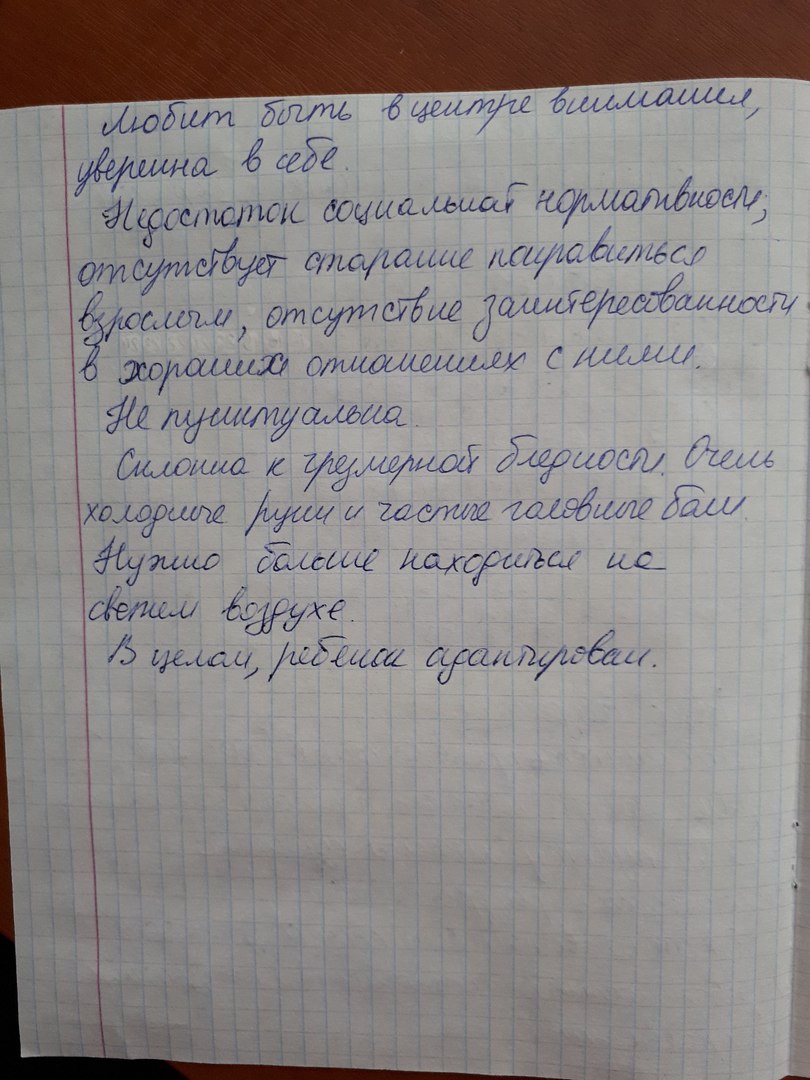 Любит быть в центре внимания,
уверенна в себе.
Недостаток социальной нормативности,
отсутствует старание понравиться
взрослым, отсутствие заинтересованности
в хороших отношениях с ними.
Не пунктуальна.
Склонна к чрезмерной бледности. Очень
холодные руки и частые головные боли.
Нужно больше находиться на
свежем воздухе.
В целом, ребенок адаптирован.